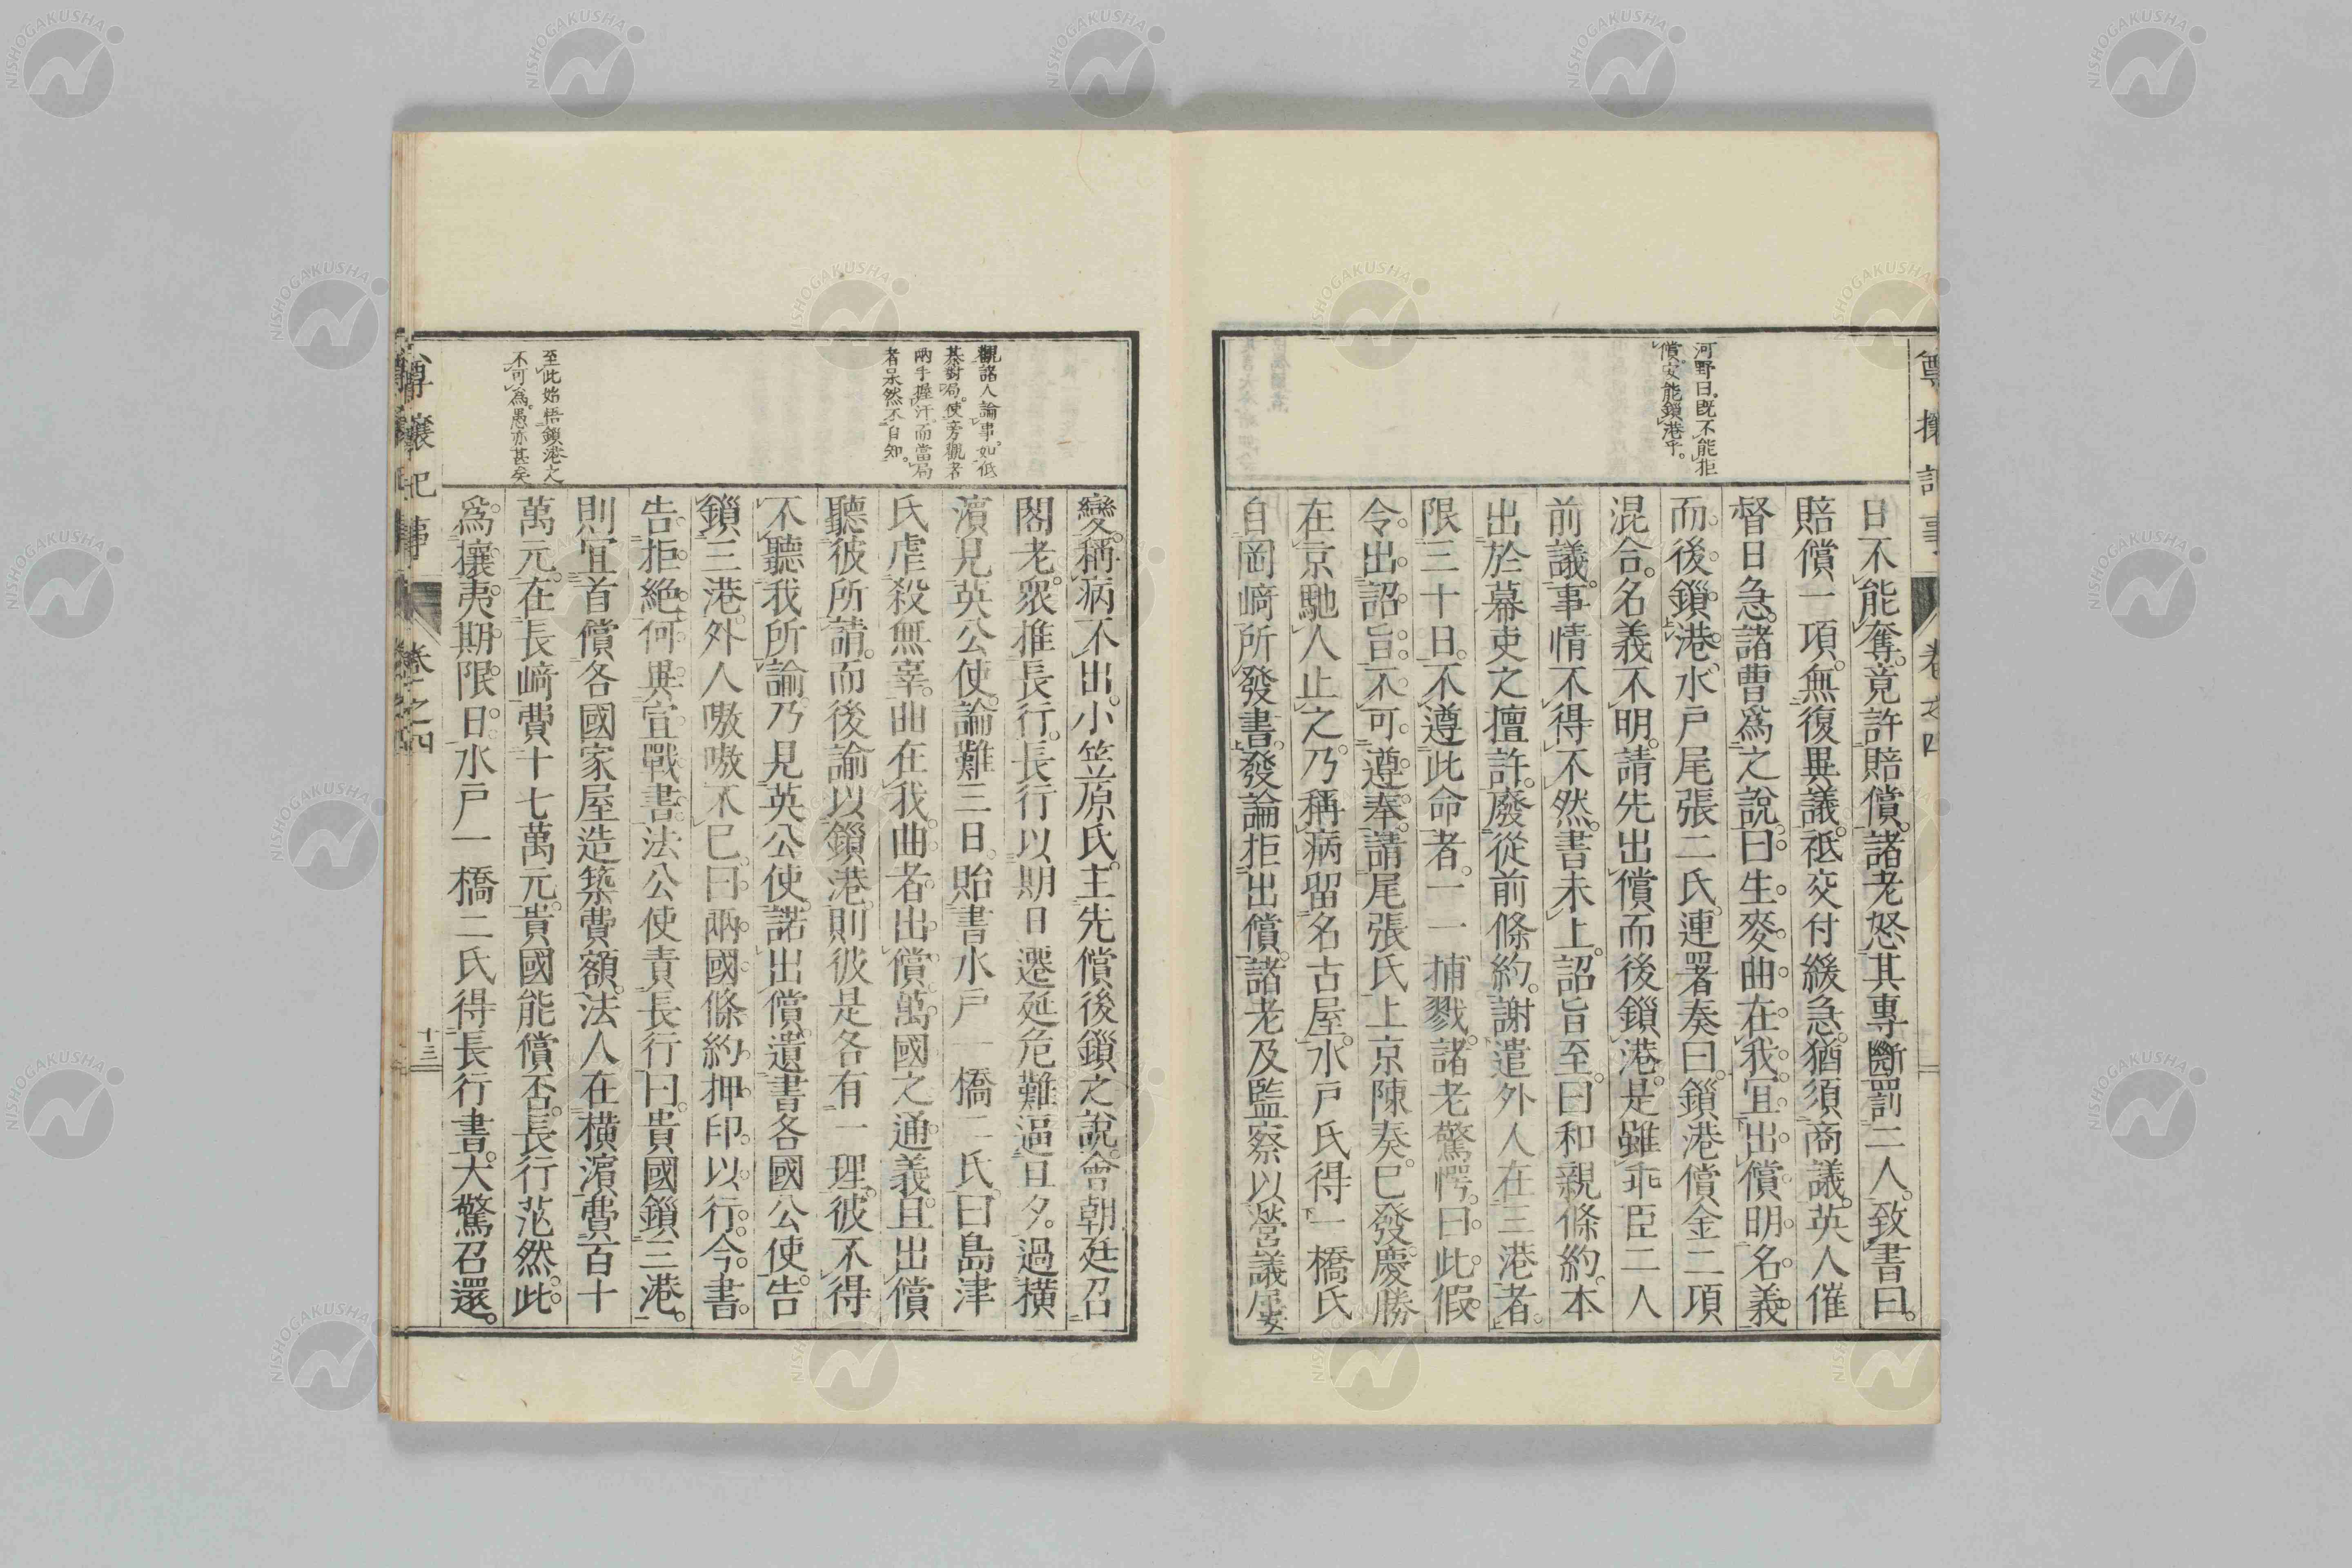 尊攘記事
卷之四
河野曰。既不能拒
償。安能鎖港乎。
日不能奪。竟許賠償。諸老怒其專斷。罰二人。致書曰。
賠償一項。無復異議。祗交付緩急。猶須商議。英人催
督日急。諸曹爲之說曰。生麥曲在我。宜出償明名義。
而後鎖港。水戶尾張二氏連署奏曰。鎖港償金二項
混合。名義不明。請先出償而後鎖港。是雖乖臣二人
前議。事情不得不然。書未上。詔旨至。曰和親條約。本
出於幕吏之擅許。廢從前條約。謝遣外人在三港者。
限三十日。不遵此命者。一一捕戮。諸老驚愕。曰。此假
令出詔旨。不可遵奉。請尾張氏上京陳奏。已發。慶勝
在京馳人止之。乃稱病留名古屋。水戶氏得一橋氏
自岡﨑所發書。發論拒出償。諸老及監察以營議屢
變。稱病不出。小笠原氏。主先償後鎖之說。會朝廷召
閣老。衆推長行。長行以期日遷延危難逼旦夕。過橫
濵見英公使。論難三日。貽書水戶一橋二氏。曰島津
氏虐殺無辜。曲在我。曲者出償。萬國之通義。且出償
聽彼所請。而後諭以鎖港。則彼是各有一理。彼不得
不聽我所論。乃見英公使。諾出償。遺書各國公使。告
鎖三港。外人嗷嗷不已。曰。兩國條約。押印以行。今書
告拒絕。何異宣戰書。法公使責長行曰。貴國鎖三港。
則宜首償各國家屋造築費額。法人在橫濵費百十
萬元。在長﨑費十七萬元。貴國能償否。長行茫然。此
爲攘夷期限日。水戶一橋二氏得長行書。大驚召還。
觀諸人論事。如低
棊對局。使旁觀者
兩手握汗。而當局
者呆然不自知。
至此始悟鎖港之
不可爲。愚亦甚矣
尊攘記事
卷之四
十三